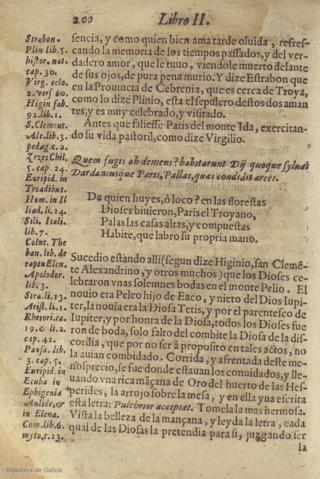 200
Libro II.
Strabon.
Plin lib. 5.
histor. nat.
cap. 30.
Virg. eclo.
2. vers. 60.
Higin fab.
92. lib. 1.
S. Clement.
Alc. lib. 3.
pedag. c. 2.
Zezes Chil.
5. cap. 24.
Euripid. in
Troadibus.
Hom. in Il
liad. li. 24.
Sili. Itali.
lib. 7.
Colut. The
ban. lib. de
raptu Elen.
Apolodor.
lib. 3.
Stra. li. 13.
Arist. li. 1.
Rhetori. ca.
19. & li. 2.
cap. 42.
Pausa. lib.
3. cap. 5.
Euripid. in
Ecuba in
Ephigenia
Aulide, &
in Elena.
Com. lib. 6.
myto. c. 23.
sencia, y como quien bien ama tarde oluida, refres-
cando la memoria de los tiempos passados, y del ver-
dadero amor, que le tuuo, viendole muerto delante
de sus ojos, de pura pena murio. Y dize Estrabon que
en la Prouincia de Cebrenia, que es cerca de Troya,
como lo dize Plinio, esta el sepulcro destos dos aman
tes, y es muy celebrado, y visitado.
Antes que saliesse Paris del monte Ida, exercitan-
do su vida pastoril, como dize Virgilio.
Quem fugis ah demens? habitarunt Dij quoque syluas
Dardaniusque Paris, Pallas, quas condidit arces.
De quien huyes, ò loco? en las florestas
Dioses biuieron, Paris el Troyano,
Palas las casas altas, y compuestas
Habite, que labro su propria mano.
Sucedio estando alli (segun dize Higinio, san Clemẽ-
te Alexandrino, y otros muchos) que los Dioses ce-
lebraron vnas solemnes bodas en el monte Pelio. El
nouio era Peleo hijo de Eaco, y nieto del Dios Iupi-
ter, la nouia era la Diosa Tetis, y por el parentesco de
Iupiter, y por honra de la Diosa, todos los Dioses fue
ron de boda, solo falto del combite la Diosa de la dis-
cordia, que por no ser à proposito en tales actos, no
la auian combidado. Corrida, y afrentada deste me-
nosprecio, se fue donde estauan los conuidados, y lle-
uando vna rica maçana de Oro del huerto de las Hes-
perides, la arrojo sobre la mesa, y en ella yua escrita
esta letra: Pulchrior accipiat. Tomela la mas hermosa.
Vista la belleza de la mançana, y leyda la letra, cada
qual de las Diosas la pretendia para si, juzgando ser
la
Biblioteca de Galicia